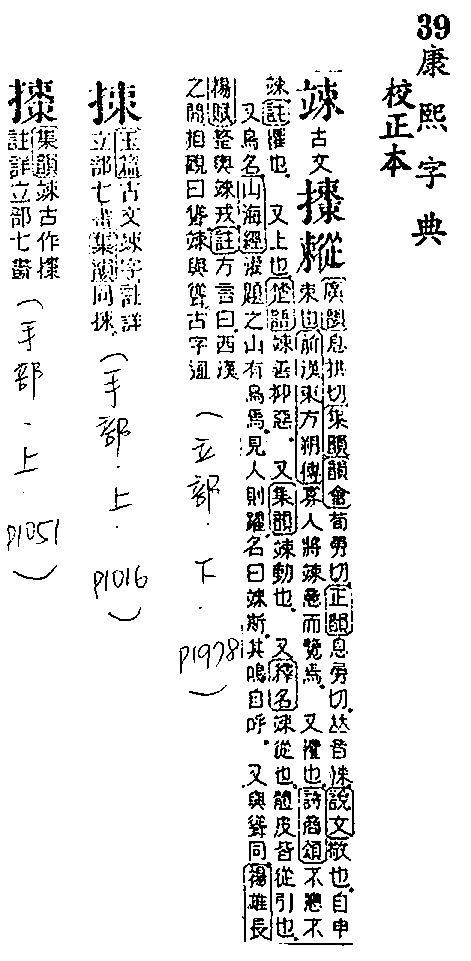 39康熙字典
校正本
竦
古文𢶡㩳
廣韻息拱切集韻韻會荀勇切正韻息勇切𠀤音悚說文敬也自申
束也前漢東方朔傳寡人將竦意而覽焉 又懼也詩商頌不戁不
竦註懼也 又上也笙韻竦善抑惡 又集韻竦動也 又釋名竦從也體皮皆從引也
又鳥名山海經灌題之山有鳥焉見人則躍名曰竦斯其鳴自呼 又與聳同揚雄長
楊賦整輿竦戎註方言曰西漢
之間相觀曰聳竦與聳古字通
(立部.下.P1978)
㨂
玉篇古文竦字註詳
立部七畫集韻同㨂
(手部.上.P1016)
𢶡
集韻竦古作𢶡
註詳立部七畫
(手部.上.P1051)